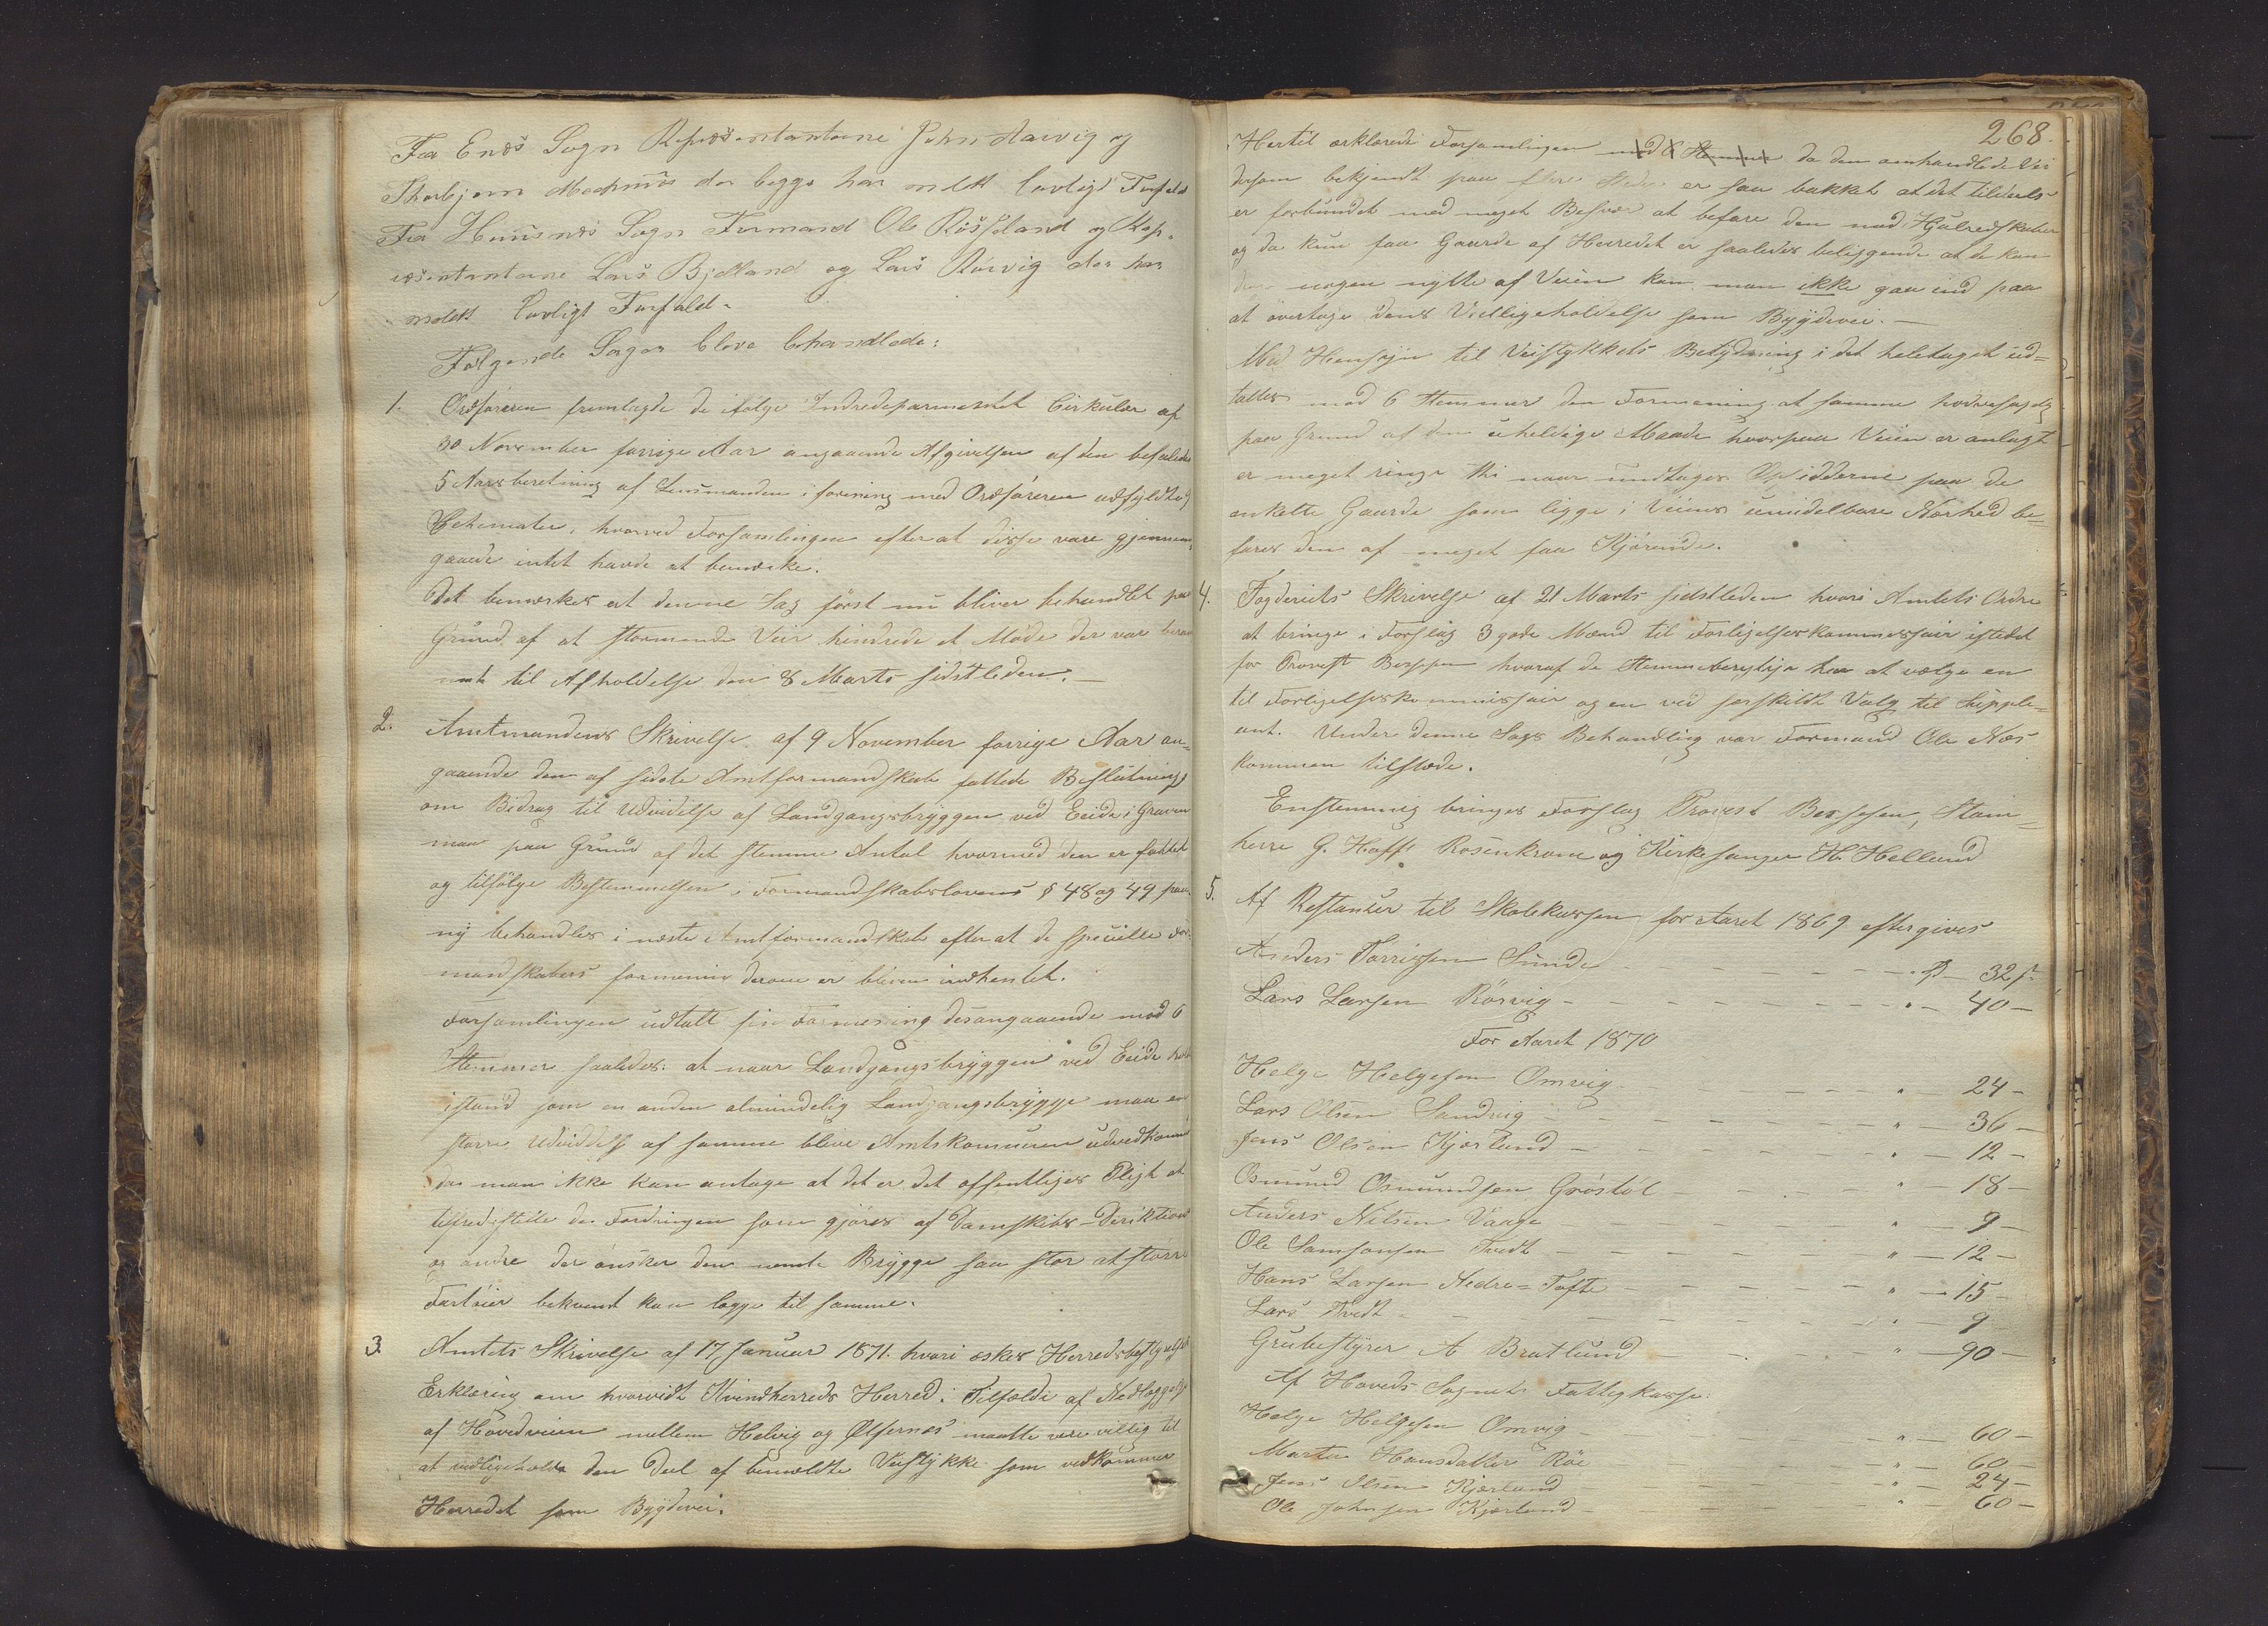 Fra Enæs Sogn Repræsentanterne John Aarvig og
Thorbjørn der begge har meldt lovligt Forfald
Fra Husnæs Sogn Formand Ole Røssland og Rep-
ræsentanterne Lars Bjelland og Lars Rørvig der har
meldt lovligt Forfald.
Følgende Sager bleve behandlede:
1. Ordføreren fremlagde de ifølge Indredeparmentet Cirkulær af
30 November forrige Aar angaaende Afgivelsen af den befalede
5 Aarsberetning af Lensmanden i forening med Ordføreren udfyldte
Schemater, hvorved Forsamlingen efter at disse vare gjennem
gaaede intet havde at bemærke.
Det bemærkes at denne Sag først nu bliver behandlet paa
Grund af at stormende Veir hindrede et Møde der var beram
met til Afholdelse den 8 Marts sidstleden. —
2. Amtmandens Skrivelse af 9 November forrige Aar an=
gaaende den af sidste Amtformandskab fattede Beslutning
om Bidrag til Udvidelse af Landgangsbryggen ved Eide i Graven
maa paa Grund af det stemme Antal hvormed den er fattet
og tilfølge Bestemmelsen i Formandskabslovens § 48 og 49 paa
ny behandles i næste Amtformandskab efter at de specielle For=
mandskabers formening derom er bleven indhentet.
Forsamlingen udtalt sin Formening desangaaende med 6
Stemmer saaledes: at naar Landgangsbryggen ved Eide
istand som en anden almindelig Landgangsbrygge maa en
større Udvidelse af samme blive Amtskommunen uvedkommende
da man ikke kan antage at det er det offentliges Pligt at
tilfredsstille de Fordringer som gjøres af Damskibs-Direktioner
og andre der ønsker den nævnte Brygge saa stor at større
Fartøier bekvemt kan lægge til samme.
3. Amtets Skrivelse af 17 Januar 1871. hvori æskes Herredsbestyrelsens
Erklæring om hvorvidt Kvindherreds Herred i Tilfælde af Nedlæggelse
af Hovedveien mellem Helvig og Ølfernæs maatte være villig til
at vedligeholde den Deel af bemældte Veistykke som vedkommer
Herredet som Bygdevei.
268.
Hertil erklærede Forsamlingen med 6 Stemmer da den omhandlede Vei
dersom bekjendt paa flere Steder er saa bakket at det tildeels
er forbundet med meget Besvær at befare den med Hjulredskaber
og da kun faa Gaarde af Herredet er saaledes beliggende at de kan
nogen nytte af Veien kan man ikke gaa ind paa
at overtage dens Vedligeholdelse som Bygdevei. —
Med Hensyn til Veistykkets Betydning i det heletaget ud=
taltes med 6 Stemmer den Formening at samme hovedsagelig
paa Grund af den uheldige Maade hvorpaa Veien er anlagt
er meget ringe thi naar undtages Opsidderne paa de
enkelte Gaarde som ligge i Veiens umiddelbare Nærhed be=
fares den af meget faa Kjørende.
4. Fogderiets Skrivelse af 21 Marts sidstleden hvori Amtets Ordre
at bringe i Forslag 3 gode Mænd til Forligelseskommissair istedet
for Provst Berssen hvoraf de Stemmeberettige har at vælge en
til Forligelseskommissair og en ved særskildt Valg til Supple=
ant. Under denne Sags Behandling var Formand Ole Næs
kommen tilstæde.
Enstemmig bringes Forslag Provst Berssen, Stam=
herre G. Hoff Rosenkrone og Kirkesanger H. Helland
5. Af Restancer til Skolekassen for Aaret 1869 eftergives
Anders Torrissen Sunde — 32 ß
Lars Larsen Rørvig — " — 40 —
For Aaret 1870
Helge Helgesen Omvig — " — 24 —
Lars Olsen Sandvig — " — 36 —
Jens Olsen Kjærland — " — 12 —
Osmund Osmundsen Grøstøl — " — 18 —
Anders Nilsen Vaage — " — 9 —
Ole Samsonsen Tvedt — " — 12 —
Hans Larsen Nedre=Tofte — " — 15 —
Lars Tvedt — " — 9
Grubestyrer A Bratlund — " — 90 —
Af Hoveds Sognets Fattigkasse:
Helge Helgesen Omvig — " — 60 —
Marta Hansdatter Røe — " — 60 —
Jens Olsen Kjærland — " — 24 —
Ole Johnsen Kjærland — " — 60 —